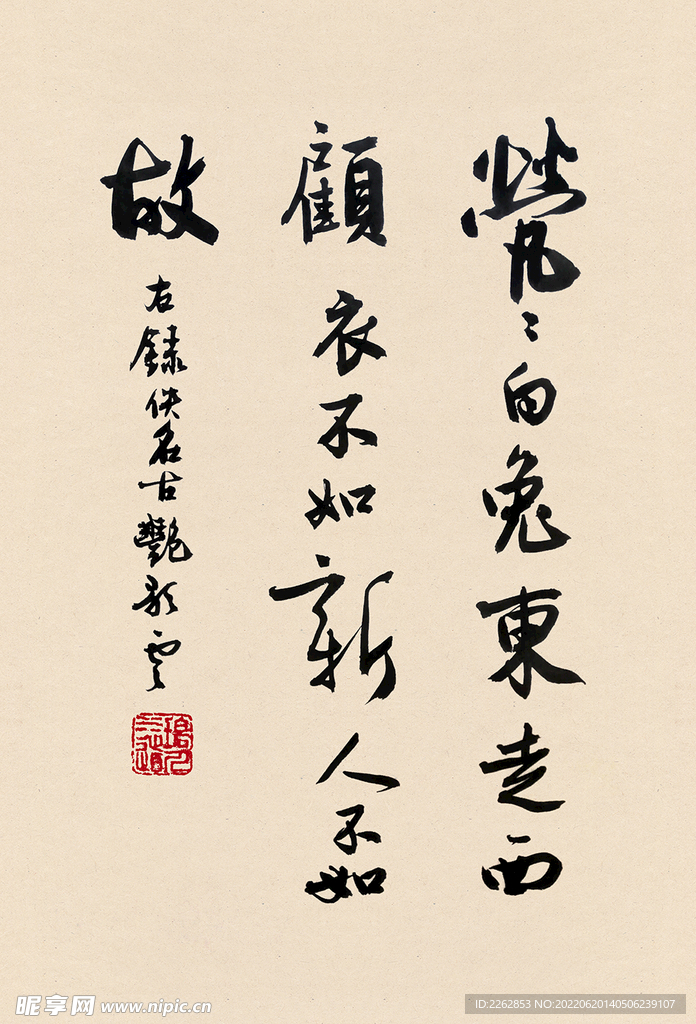 煢〻白兔東走西
顧衣不如新人不如
故
右錄佚名古艷歌 雲
昵享网 www.nipic.cn
ID:2262853 NO:20220620140506239107